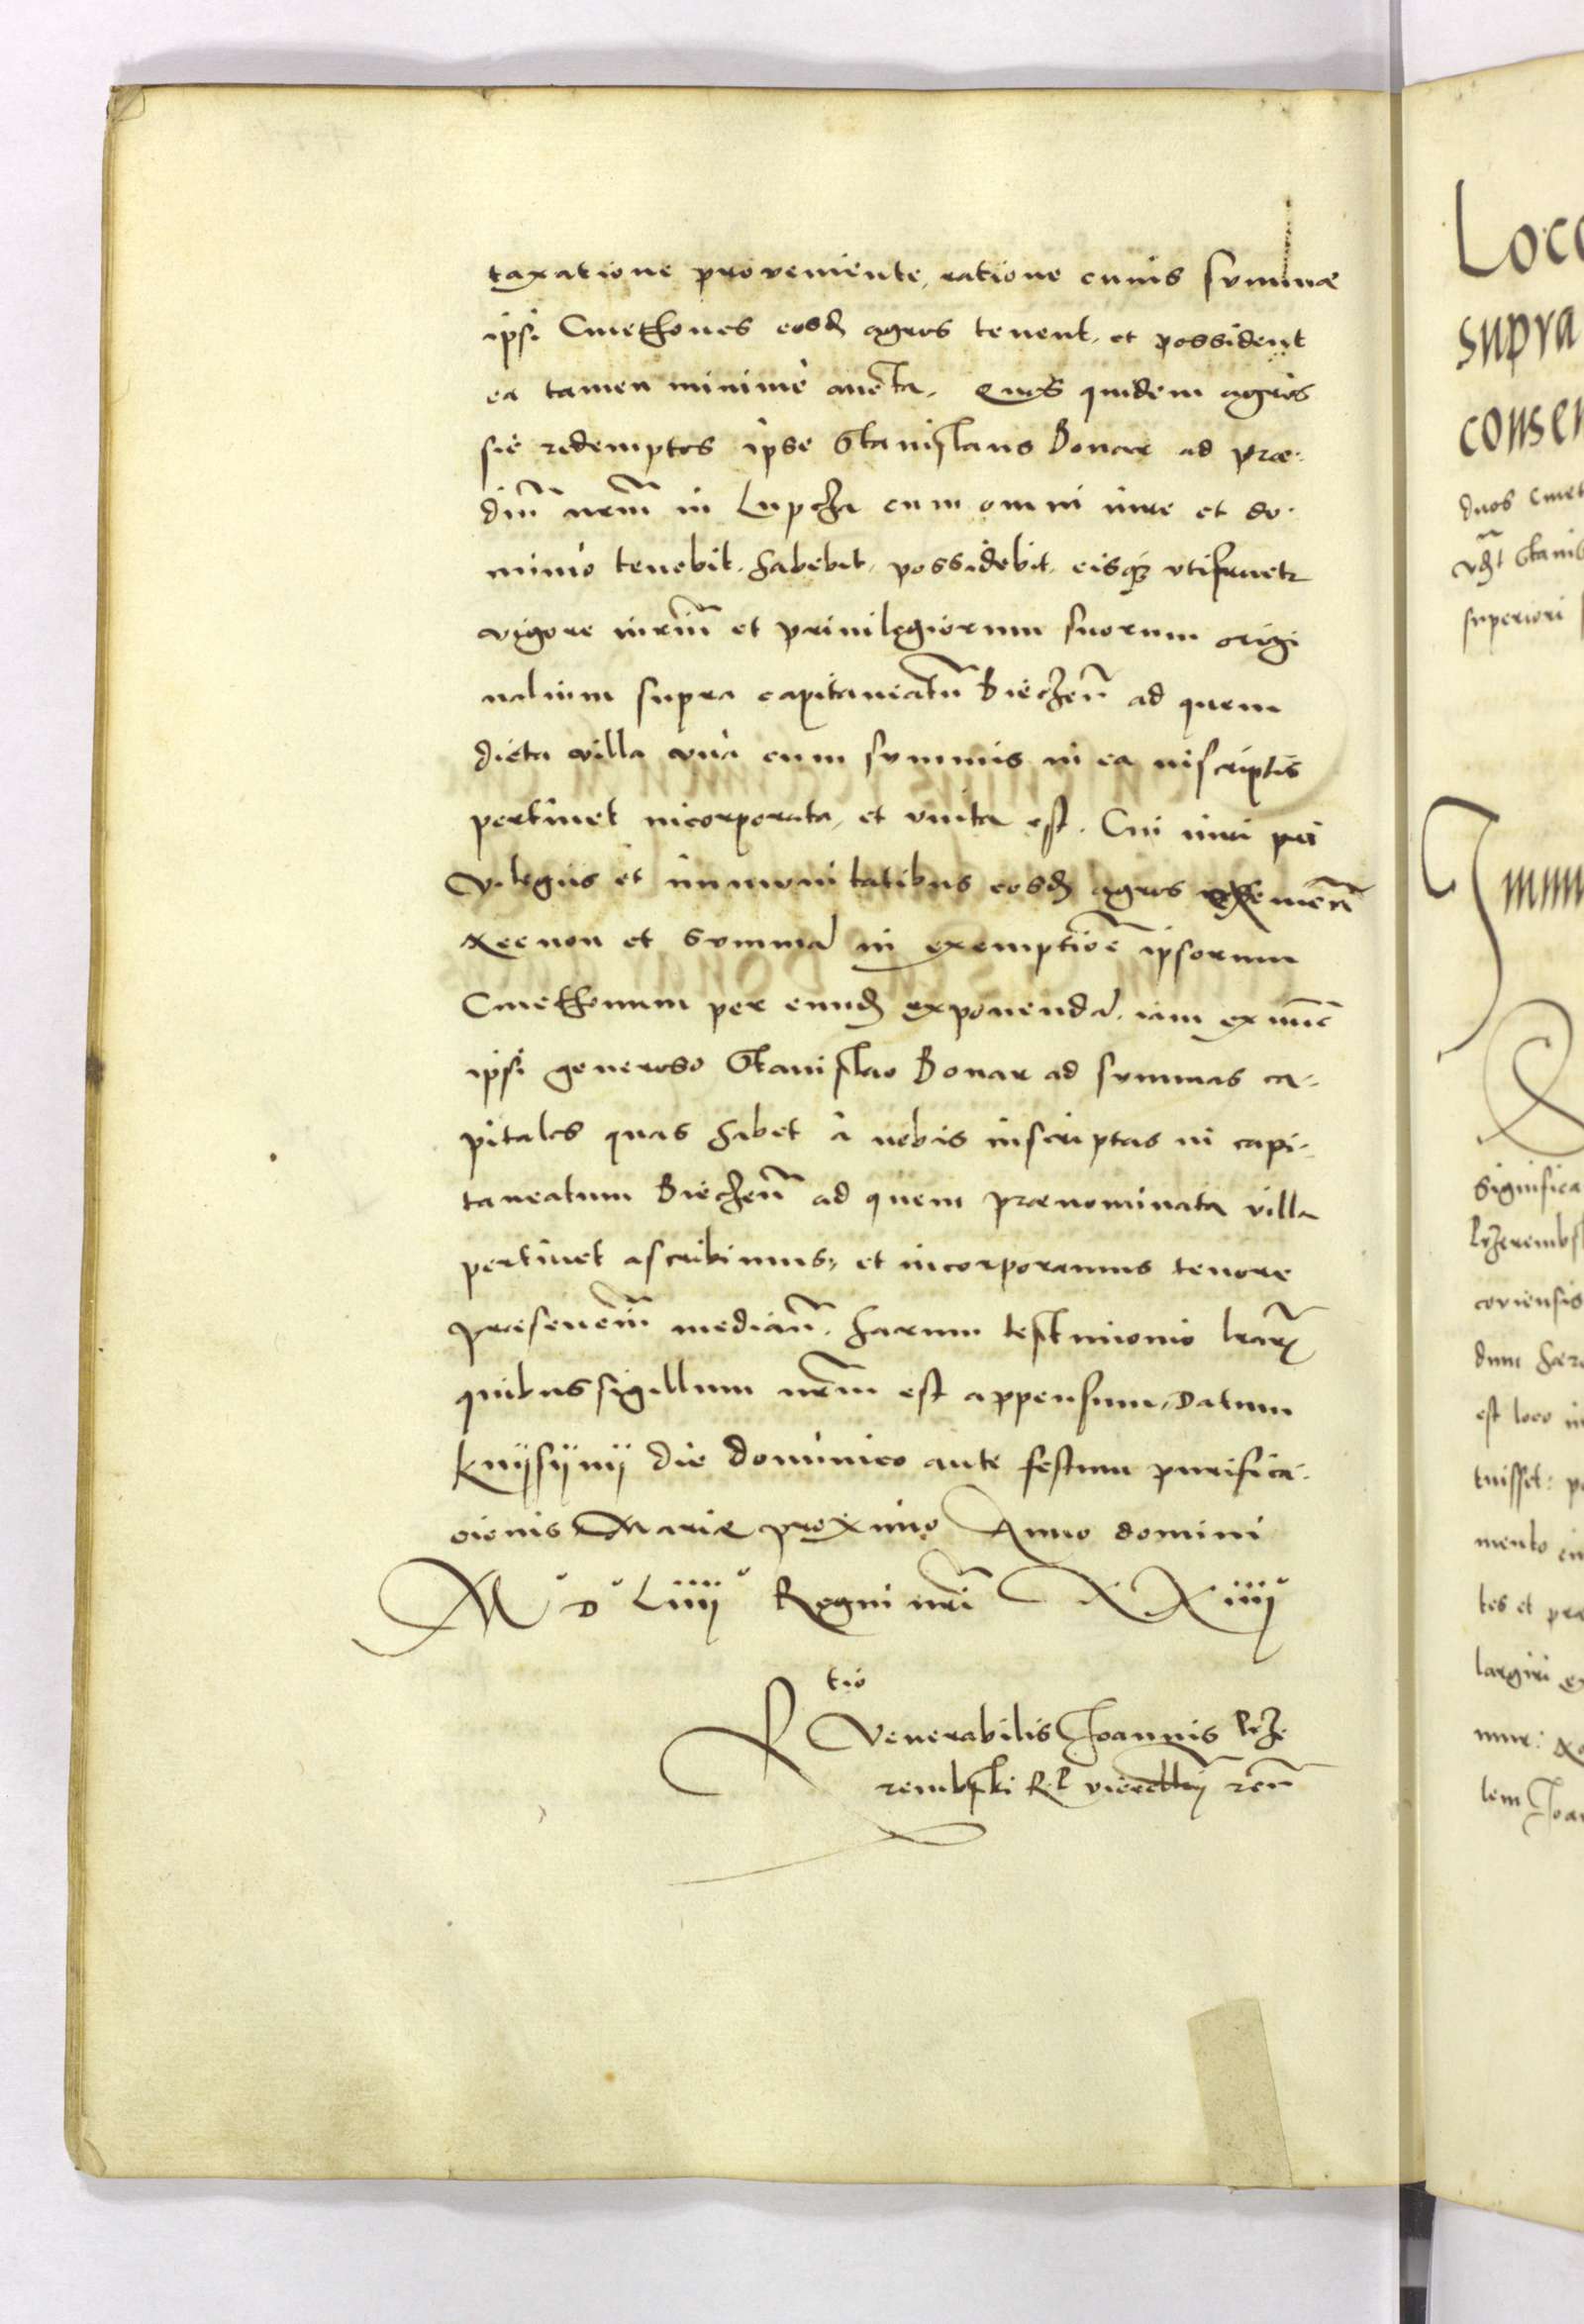 taxatione proveniente, ratione cuius summæ
ipsi Cmethones eosd agros tenent, et possident
ea tamen minimè aucta. Quos quidem agros
sic redemptos ipse Stanislaus Bonar ad præ-
diũ nrm̃ in Lupcza cum omni iure et do-
minio tenebit, habebit, possidebit, eisq; vtifruetr
vigore iuriũ et priuilegiorum suorum origi
nalium supra capitaneatũ Biéczeñ ad quem
dicta villa vnà cum summis in ea inscriptis
pertinet incorporata, et vnita est. Cui iuri pri
vilegiis et immunitatibus eosd agros
Necnon et summã in exemptioẽ ipsorum
Cmethonum per eund exponendã, iam ex nũc
ipsi generoso Stanislao Bonar ad summas ca-
pitales quas habet à nobis inscriptas in capi-
taneatum Biéczeñ ad quem prænominata villa
pertinet ascribimus, et incorporamus tenore
præsenciũ mediañ. harum testimonio lrar̃
quibus sigillum nrm̃ est appensum, Datum
Knÿsÿnÿ die dominico ante festum purifica-
cionis Mariæ proximo Anno domini
M D Liiij Regni nrĩ XXiiij
Rtio Venerabilis Joannis Prze
rembski R. P. vicecllrij reñ
Loco
supra
consen
duos Cmet
vt Stanis
superiori
Imm
S
Significa
Przerembs
coviensis
dum hære
est loco in
tuisset: p
mento
tes et præ
largiri
mur:
lem Joan